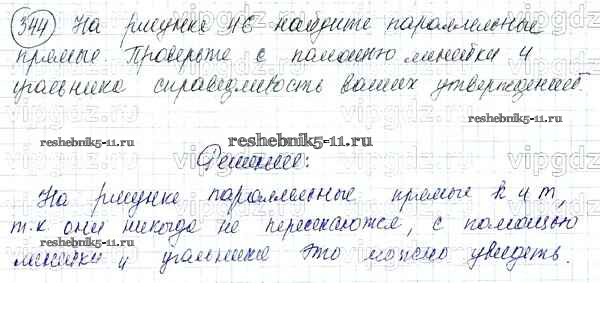 344 На рисунке 46 найдите параллельные
прямые. Проверьте с помощью линейки и
угольника справедливость ваших утверждений.
reshebnik5-11.ru
reshebnik5-11.ru
Решение:
На рисунке параллельные прямые k и m,
т.к они никогда не пересекаются, с помощью
reshebnik5-11.ru
линейки и угольника это можно увидеть.
vipgdz.ru